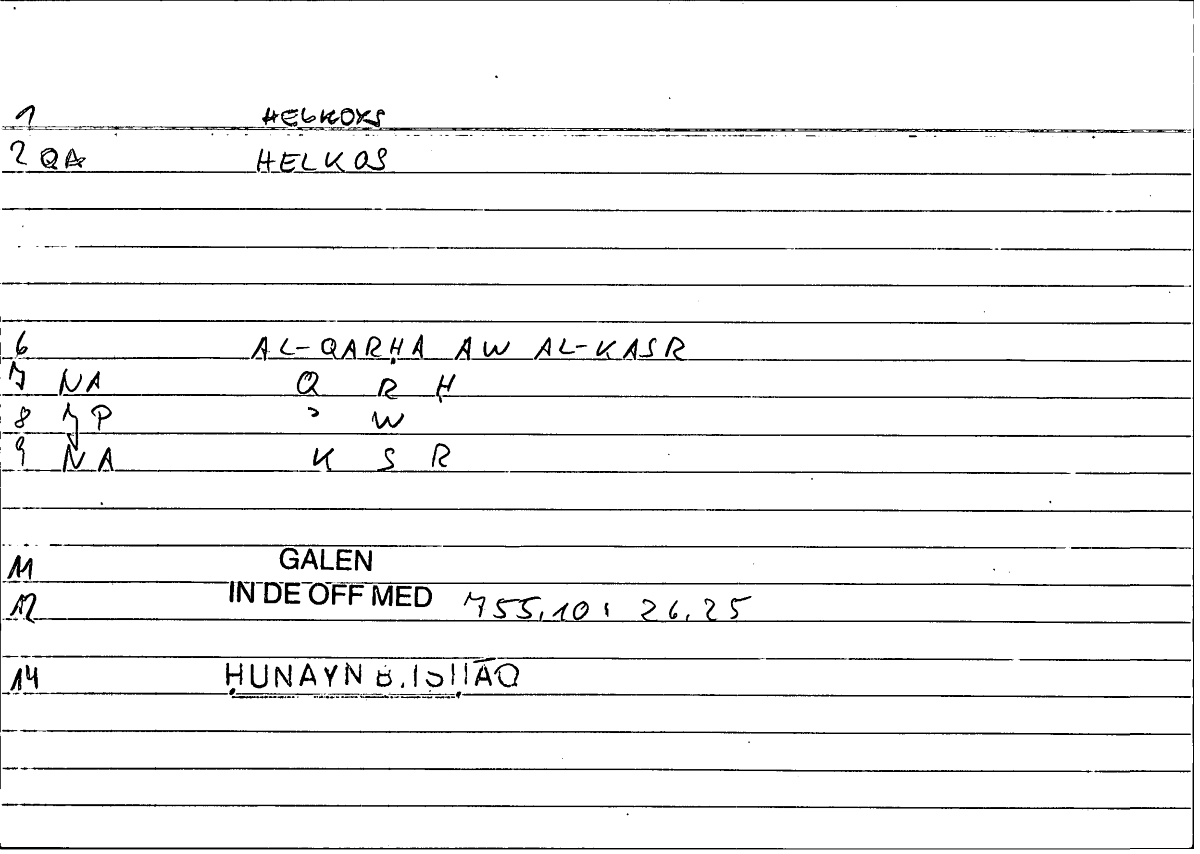 1 HELKOYS
2 QA HELKOS
6 AL-QARḤA AW AL-KASR
7 NA Q R Ḥ
8 7P ʾ W
9 NA K S R
11 GALEN
12 IN DE OFF MED 755,10 : 26,25
14 ḤUNAYN B. ISḤĀQ